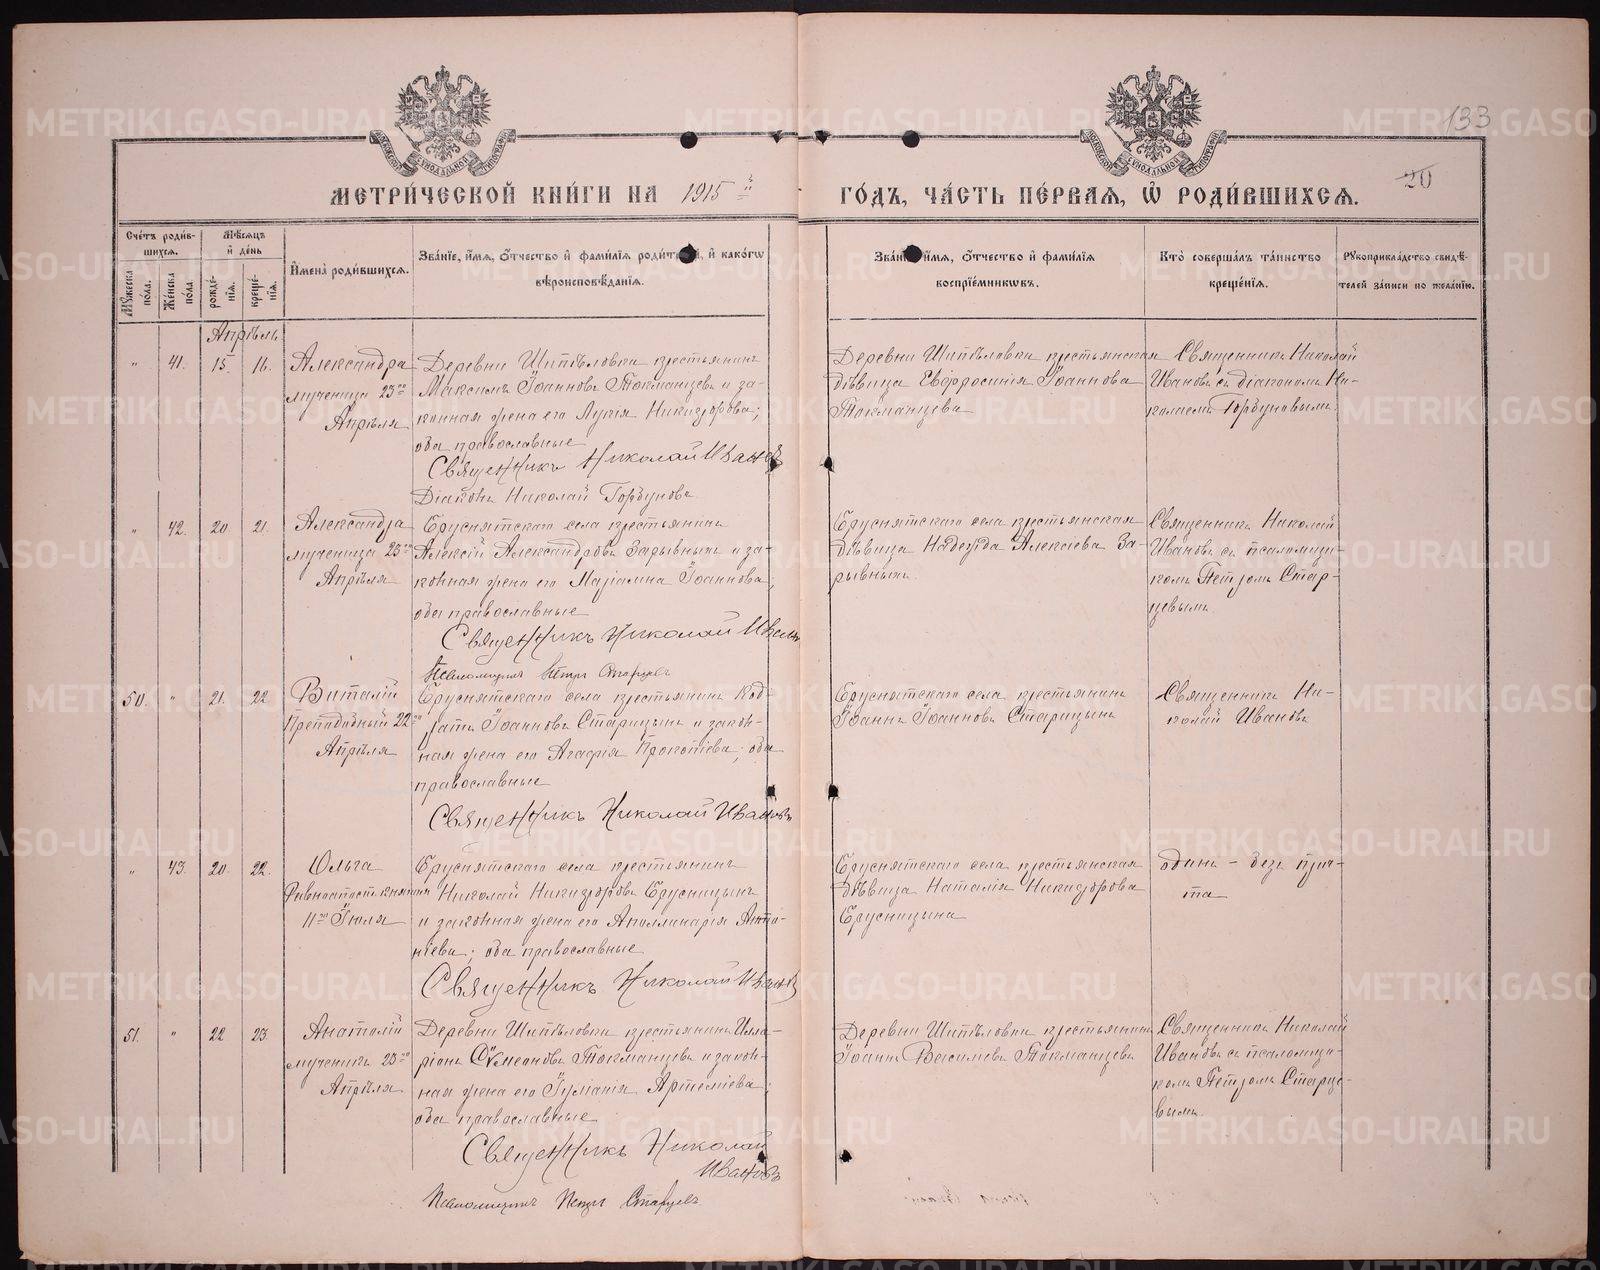 133
20
МЕТРИ́ЧЕСКОЙ КНИ́ГИ НА 1915й ГО́ДЪ, ЧА́СТЬ ПЕ́РВАЯ, Ѡ РОДИ́ВШИХСЯ.
Сче́тъ роди́в-
шихся.
Му́жеска по́ла.
Же́нска по́ла.
Мѣ́сяцъ
и҆ де́нь
рожде́-
нїя.
креще́-
нїя.
И҆мена̀ роди́вшихся.
Зва́нїе, и҆́мя, ѻ҆́тчество и҆ фами́лїя роди́телей, и҆ како́гѡ
вѣроисповѣ́данїя.
Зва́нїе, и҆́мя, ѻ҆́тчество и҆ фами́лїя
воспрїе́мникѡвъ.
Кто̀ соверша́лъ та́инство
креще́нїя.
Рꙋкоприкла́дство свидѣ́-
телей за́писи по жела́нїю.
Апрѣль
" 41. 15 16.
Александра
мученица 23го
Апрѣля
Деревни Шипѣловки крестьянинъ
Максимъ Іоанновъ Токманцевъ и за-
конная жена его Лукія Никифорова;
оба православные
Священникъ Николай Ивановъ
Діаконъ Николай Горбуновъ
Деревни Шипѣловки крестьянская
дѣвица Евфросинія Іоаннова
Токманцева
Священникъ Николай
Ивановъ съ діакономъ Ни-
колаемъ Горбуновымъ.
" 42. 20 21.
Александра
мученица 23го
Апрѣля
Бруснятскаго села крестьянинъ
Алексій Александровъ Зарывныхъ и за-
конная жена его Маріамна Іоаннова;
оба православные
Священникъ Николай Ивановъ
Псаломщикъ Петръ Старцевъ
Бруснятскаго села крестьянская
дѣвица Надежда Алексіева За-
рывныхъ.
Священникъ Николай
Ивановъ съ псаломщи-
комъ Петромъ Стар-
цевымъ.
50. " 21. 22
Виталій
Преподобный 22го
Апрѣля
Бруснятскаго села крестьянинъ Код-
ратъ Іоанновъ Старицынъ и закон-
ная жена его Агафія Прокопіева; оба
православные
Священникъ Николай Ивановъ
Бруснятскаго села крестьянинъ
Іоаннъ Іоанновъ Старицынъ
Священникъ Ни-
колай Ивановъ
" 43. 20. 22.
Ольга
Равноапост. княгиня
11го Іюля
Бруснятскаго села крестьянинъ
Николай Никифоровъ Брусницынъ
и законная жена его Аполлинарія Анто-
ніева; оба православные
Священникъ Николай Ивановъ
Бруснятскаго села крестьянская
дѣвица Наталія Никифорова
Брусницына
одинъ – безъ прич-
та
51. " 22 23.
Анатолій
мученикъ 23го
Апрѣля
Деревни Шипѣловки крестьянинъ Илла-
ріонъ Сѵмеоновъ Токманцевъ и закон-
ная жена его Іуланія Артеміева;
оба православные
Священникъ Николай
Ивановъ
Псаломщикъ Петръ Старцевъ.
Деревни Шипѣловки крестьянинъ
Іоаннъ Василіевъ Токманцевъ
Священникъ Николай
Ивановъ съ псаломщи-
комъ Петромъ Старце-
вымъ.
METRIKI.GASO-URAL.RU